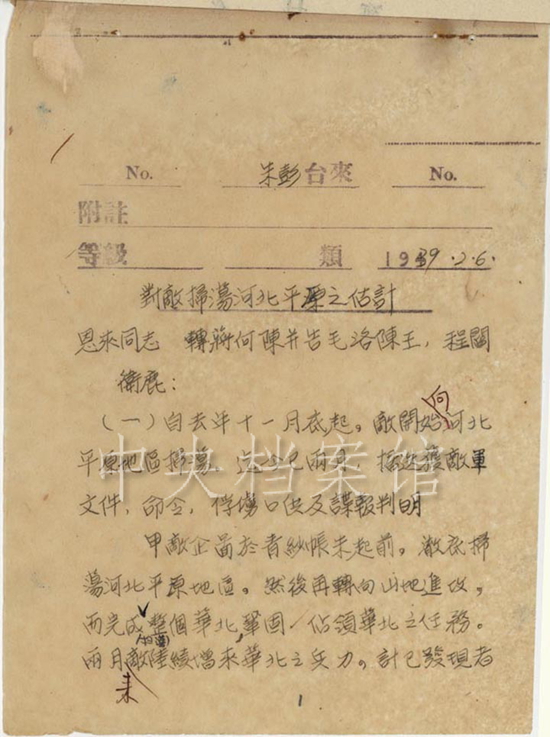 No. 朱彭台來 No.
附註
等級 類 1939.2.6.
對敵掃蕩河北平原之估計
恩來同志 轉蔣何陳并告毛洛陳王，程閻
衛鹿：
（一）自去年十一月底起，敵開始向河北
平原地區掃蕩，迄今已兩月，據迭獲敵軍
文件，命令，俘虜口供及諜報判明
甲敵企圖於青紗帳未起前，澈底掃
蕩河北平原地區。然後再轉向山地進攻，
而完成整個華北，鞏固佔領華北之任務。
兩月來敵陸續增來華北之兵力。計已發現者
1
中央档案馆